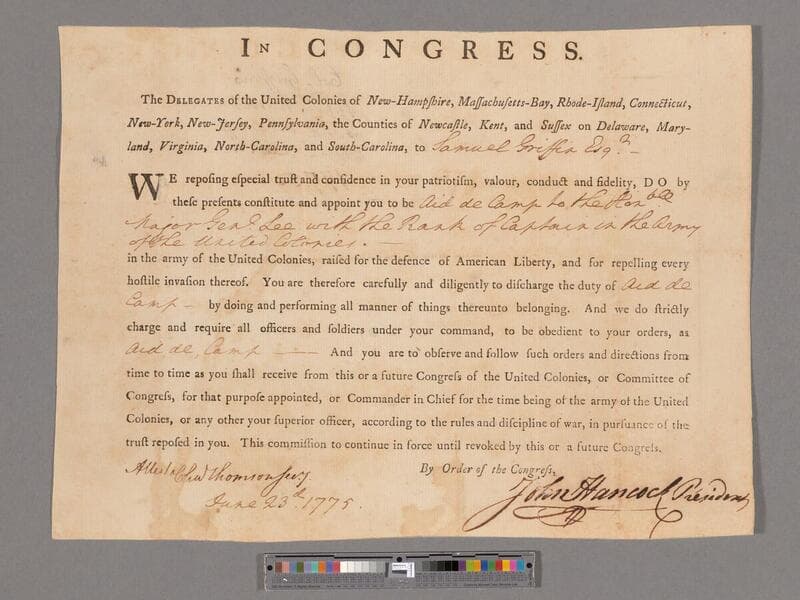 In CONGRESS.
The Delegates of the United Colonies of New-Hampſhire, Maſſachuſetts-Bay, Rhode-Iſland, Connecticut,
New-York, New-Jerſey, Pennſylvania, the Counties of Newcaſtle, Kent, and Suſſex on Delaware, Mary-
land, Virginia, North-Carolina, and South-Carolina, to Samuel Griffin Esqr. –
WE repoſing eſpecial truſt and confidence in your patriotiſm, valour, conduct and fidelity, DO by
theſe preſents conſtitute and appoint you to be Aid de Camp to the Honble
Major Genl. Lee with the Rank of Captain in the Army
of the United Colonies. –
in the army of the United Colonies, raiſed for the defence of American Liberty, and for repelling every
hoſtile invaſion thereof. You are therefore carefully and diligently to diſcharge the duty of Aid de
Camp – by doing and performing all manner of things thereunto belonging. And we do ſtrictly
charge and require all officers and ſoldiers under your command, to be obedient to your orders, as
Aid de Camp — And you are to obſerve and follow ſuch orders and directions from
time to time as you ſhall receive from this or a future Congreſs of the United Colonies, or Committee of
Congreſs, for that purpoſe appointed, or Commander in Chief for the time being of the army of the United
Colonies, or any other your ſuperior officer, according to the rules and diſcipline of war, in purſuance of the
truſt repoſed in you. This commiſſion to continue in force until revoked by this or a future Congreſs.
Attest Chas Thomson Secy By Order of the Congreſs,
John Hancock President
June 23th. 1775.